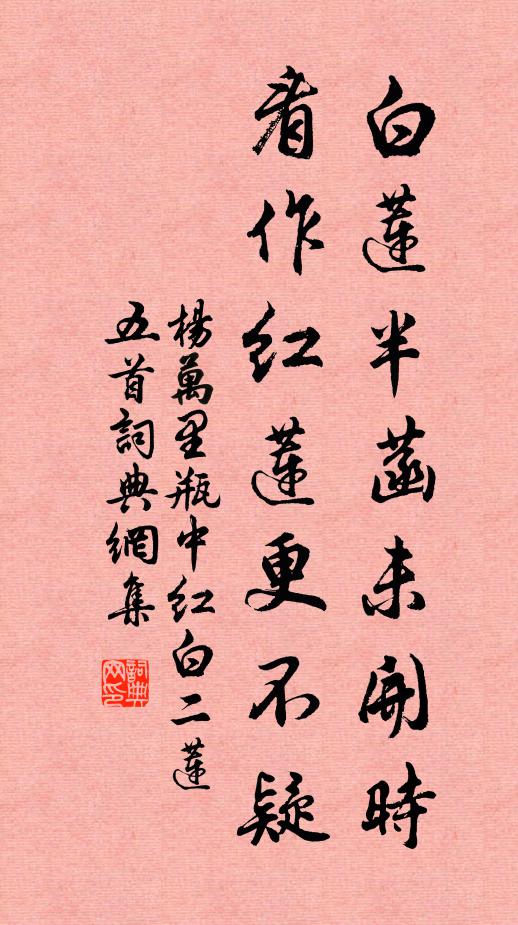 白蓮半菡未開時
看作紅蓮更不疑
楊萬里瓶中紅白二蓮
五首詞典網集
詞典
网印